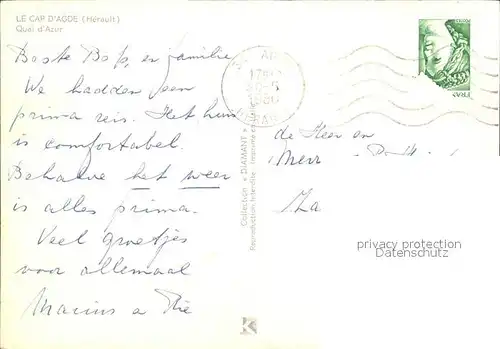 LE CAP D'AGDE (Hérault)
Quai d'Azur
Beste Bop, en familie
We hadden een
prima reis. Het huis
is comfortabel.
Behalve het weer
is alles prima.
Veel groetjes
voor allemaal
Marius
de Heer en
Mevr
Collection « DIAMANT »
Reproduction Interdite
privacy protection
Datenschutz
K